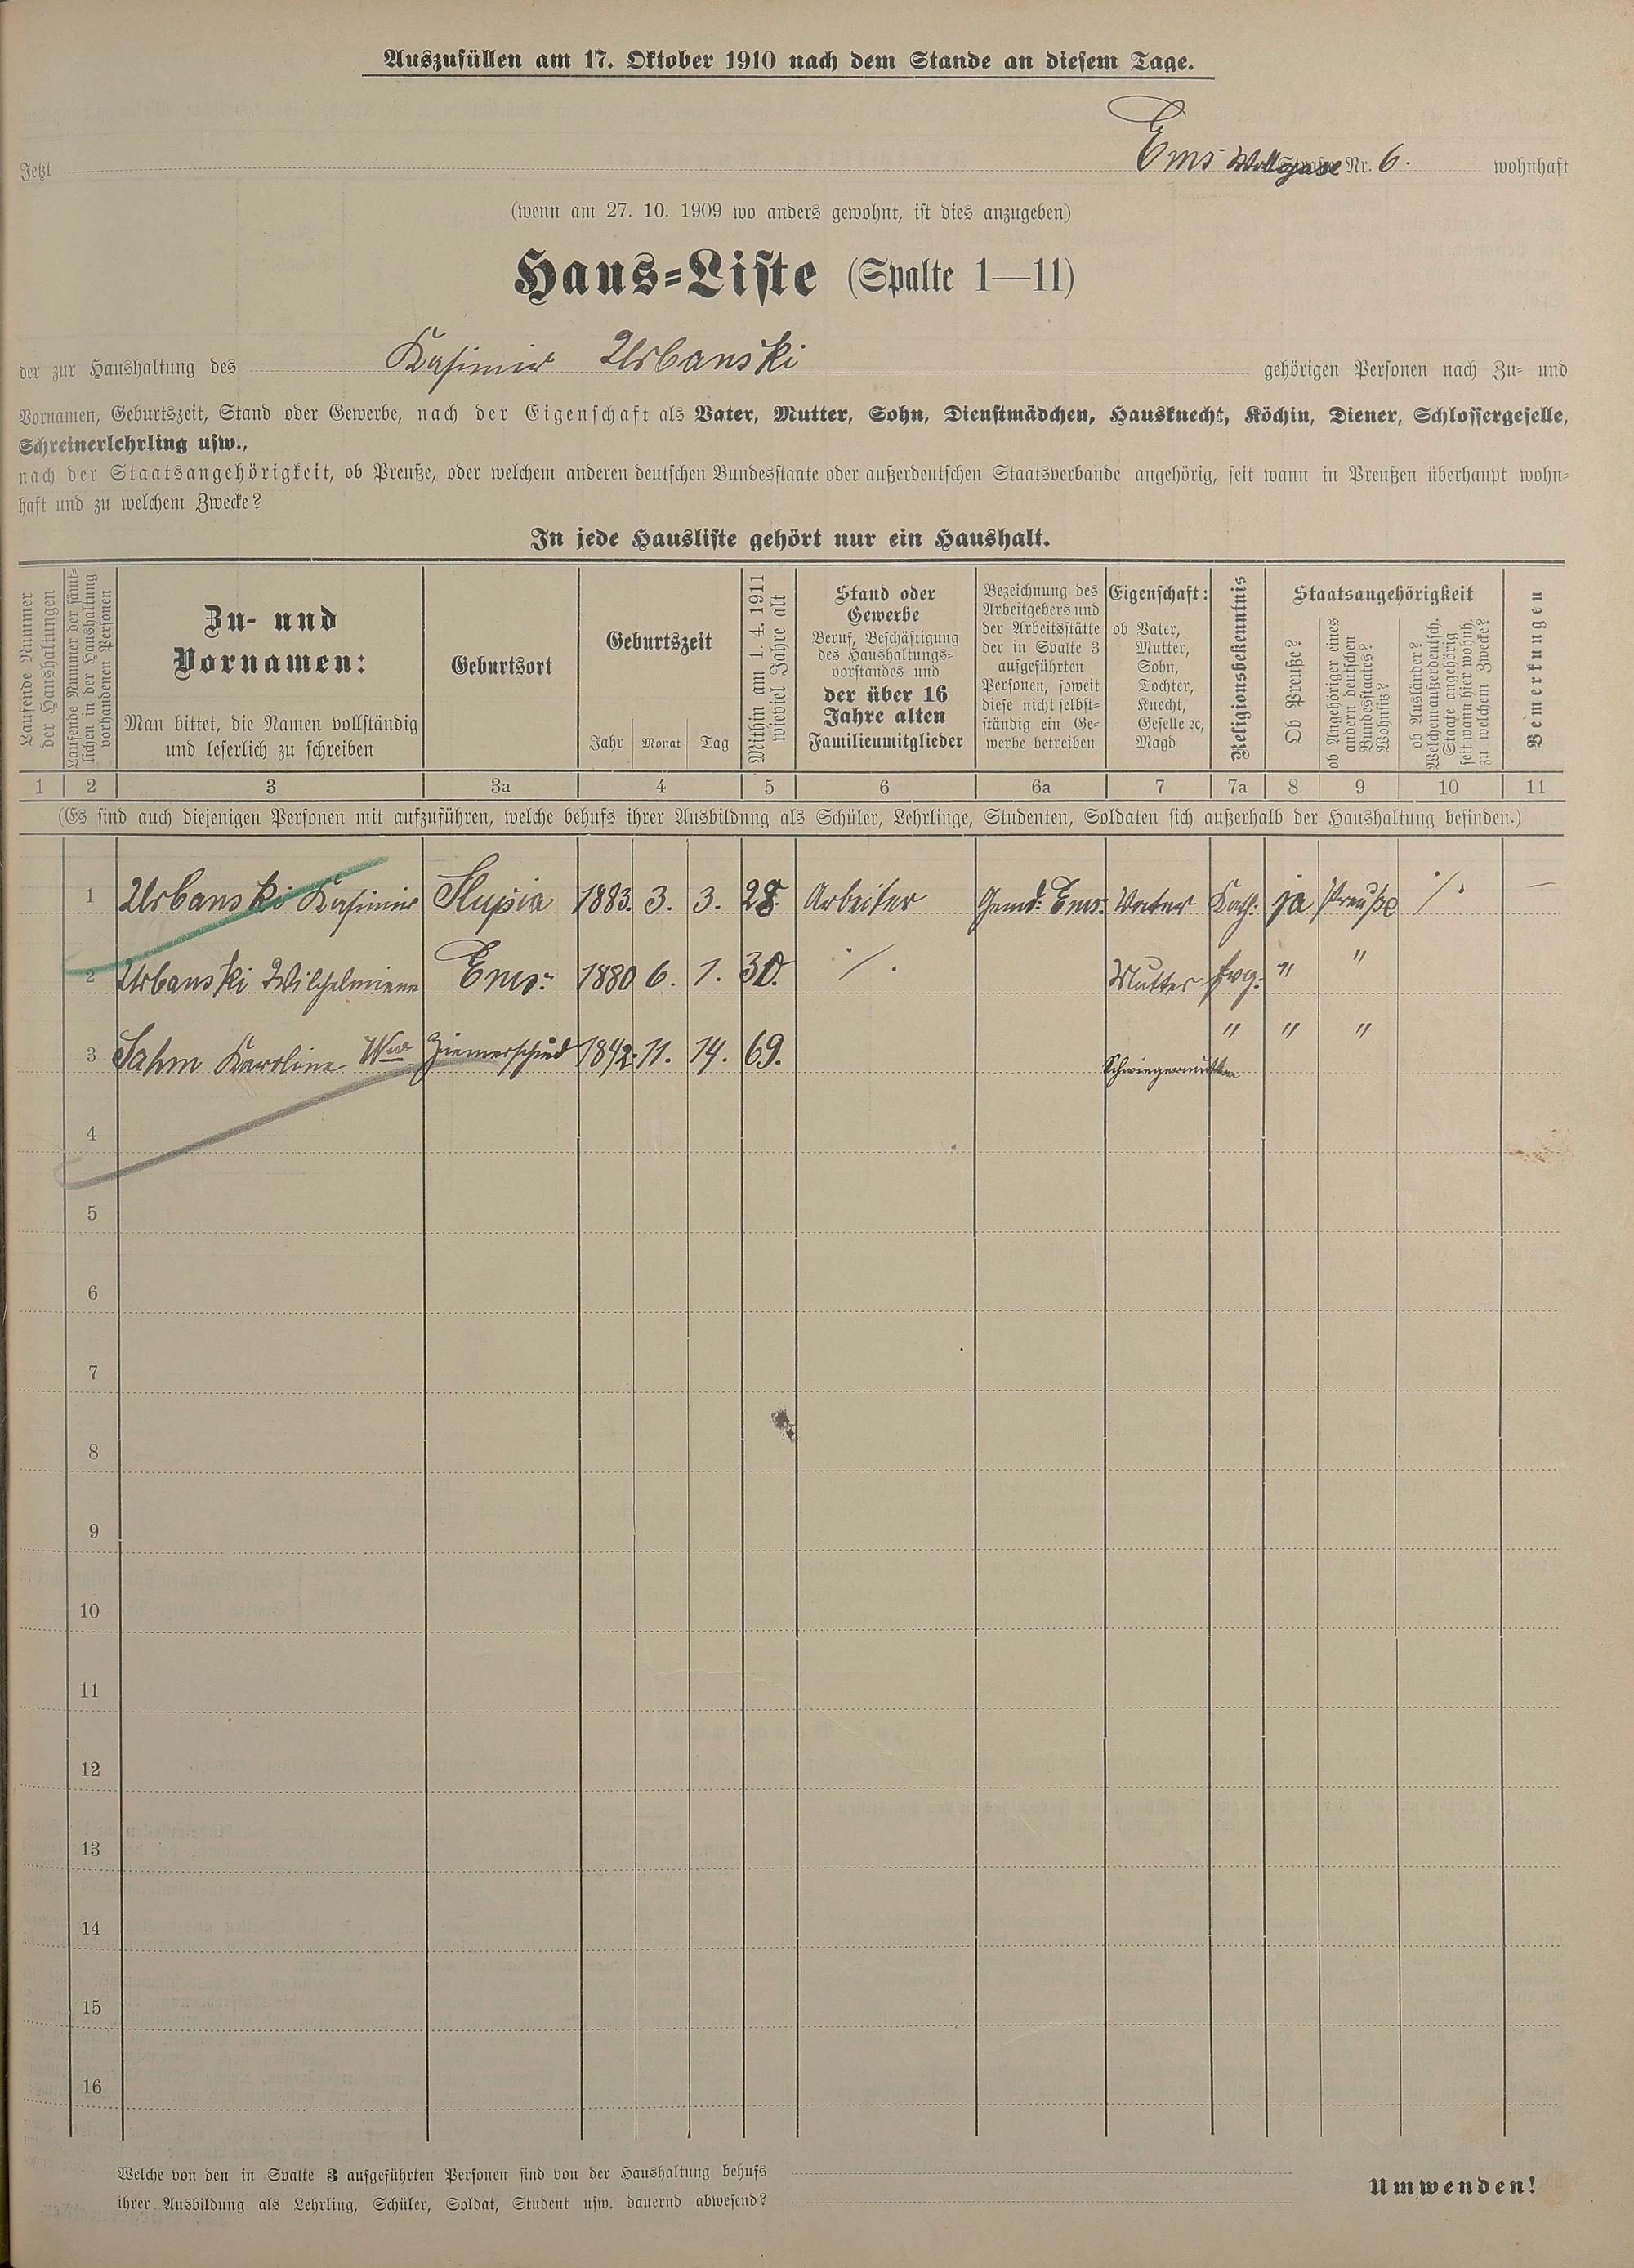 Auszufüllen am 17. Oktober 1910 nach dem Stande an diesem Tage.
Jetzt Ems Wollgasse Nr. 6. wohnhaft
(wenn am 27. 10. 1909 wo anders gewohnt, ist dies anzugeben)
Haus-Liste (Spalte 1—11)
der zur Haushaltung des Kasimir Urbanski gehörigen Personen nach Zu- und
Vornamen, Geburtszeit, Stand oder Gewerbe, nach der Eigenschaft als Vater, Mutter, Sohn, Dienstmädchen, Hausknecht, Köchin, Diener, Schlossergeselle,
Schreinerlehrling usw.,
nach der Staatsangehörigkeit, ob Preuße, oder welchem anderen deutschen Bundesstaate oder außerdeutschen Staatsverbande angehörig, seit wann in Preußen überhaupt wohn-
haft und zu welchem Zwecke?
In jede Hausliste gehört nur ein Haushalt.
Laufende Nummer
der Haushaltungen
Laufende Nummer der sämt-
lichen in der Haushaltung
vorhandenen Personen
Zu- und
Vornamen:
Man bittet, die Namen vollständig
und leserlich zu schreiben
Geburtsort
Geburtszeit
Jahr Monat Tag
Mithin am 1. 4. 1911
wieviel Jahre alt
Stand oder
Gewerbe
Beruf, Beschäftigung
des Haushaltungs-
vorstandes und
der über 16
Jahre alten
Familienmitglieder
Bezeichnung des
Arbeitgebers und
der Arbeitsstätte
der in Spalte 3
aufgeführten
Personen, soweit
diese nicht selbst-
ständig ein Ge-
werbe betreiben
Eigenschaft:
ob Vater,
Mutter,
Sohn,
Tochter,
Knecht,
Geselle ꝛc,
Magd
Religionsbekenntnis
Staatsangehörigkeit
Ob Preuße?
ob Angehöriger eines
andern deutschen
Bundesstaates?
Wohnsitz?
ob Ausländer?
Welchem außerdeutsch.
Staate angehörig
seit wann hier wohnh.
zu welchem Zwecke?
Bemerkungen
1 2 3 3a 4 5 6 6a 7 7a 8 9 10 11
(Es sind auch diejenigen Personen mit aufzuführen, welche behufs ihrer Ausbildung als Schüler, Lehrlinge, Studenten, Soldaten sich außerhalb der Haushaltung befinden.)
1 Urbanski Kasimir Slupia 1883. 3. 3. 28. Arbeiter Gemd. Ems. Vater Kath. ja Preuße ·/. —
2 Urbanski Wilhelmiene Ems. 1880 6. 1. 30. ·/. Mutter Evg. " "
3 Sahm Karoline Wwe Ziemerschied 1842. 11. 14. 69. Schwiegermutter " " "
4
5
6
7
8
9
10
11
12
13
14
15
16
Welche von den in Spalte 3 aufgeführten Personen sind von der Haushaltung behufs
ihrer Ausbildung als Lehrling, Schüler, Soldat, Student usw. dauernd abwesend?
Umwenden!